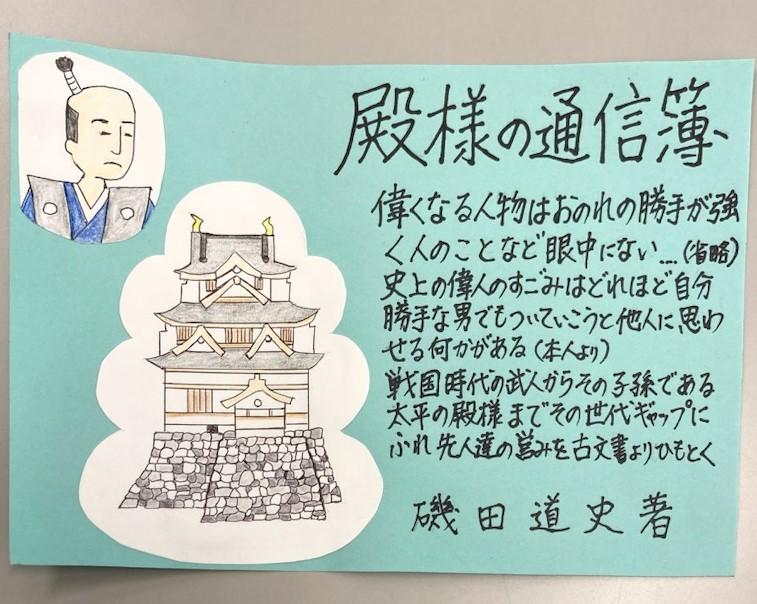 殿様の通信簿
偉くなる人物はおのれの勝手が強
く人のことなど眼中にない…(省略)
史上の偉人のすごみはどれほど自分
勝手な男でもついていこうと他人に思わ
せる何かがある(本人より)
戦国時代の武人からその子孫である
太平の殿様までその世代ギャップに
ふれ先人達の営みを古文書よりひもとく
磯田道史著